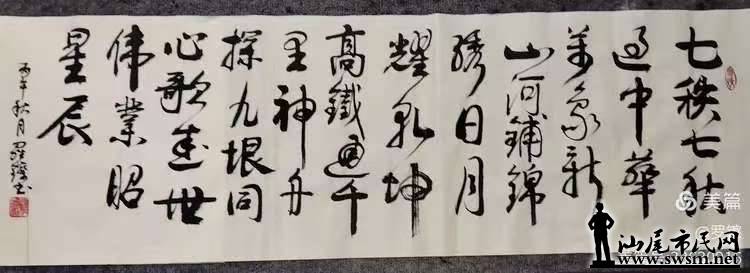 七秩七秋
过中華
萬象新
山河鋪錦
绣日月
耀乾坤
高鐵通千
里神舟
探九垠同
心歌盛世
伟業昭
星辰
丙午秋月羅书
美篇
汕尾市民网
www.swsm.net